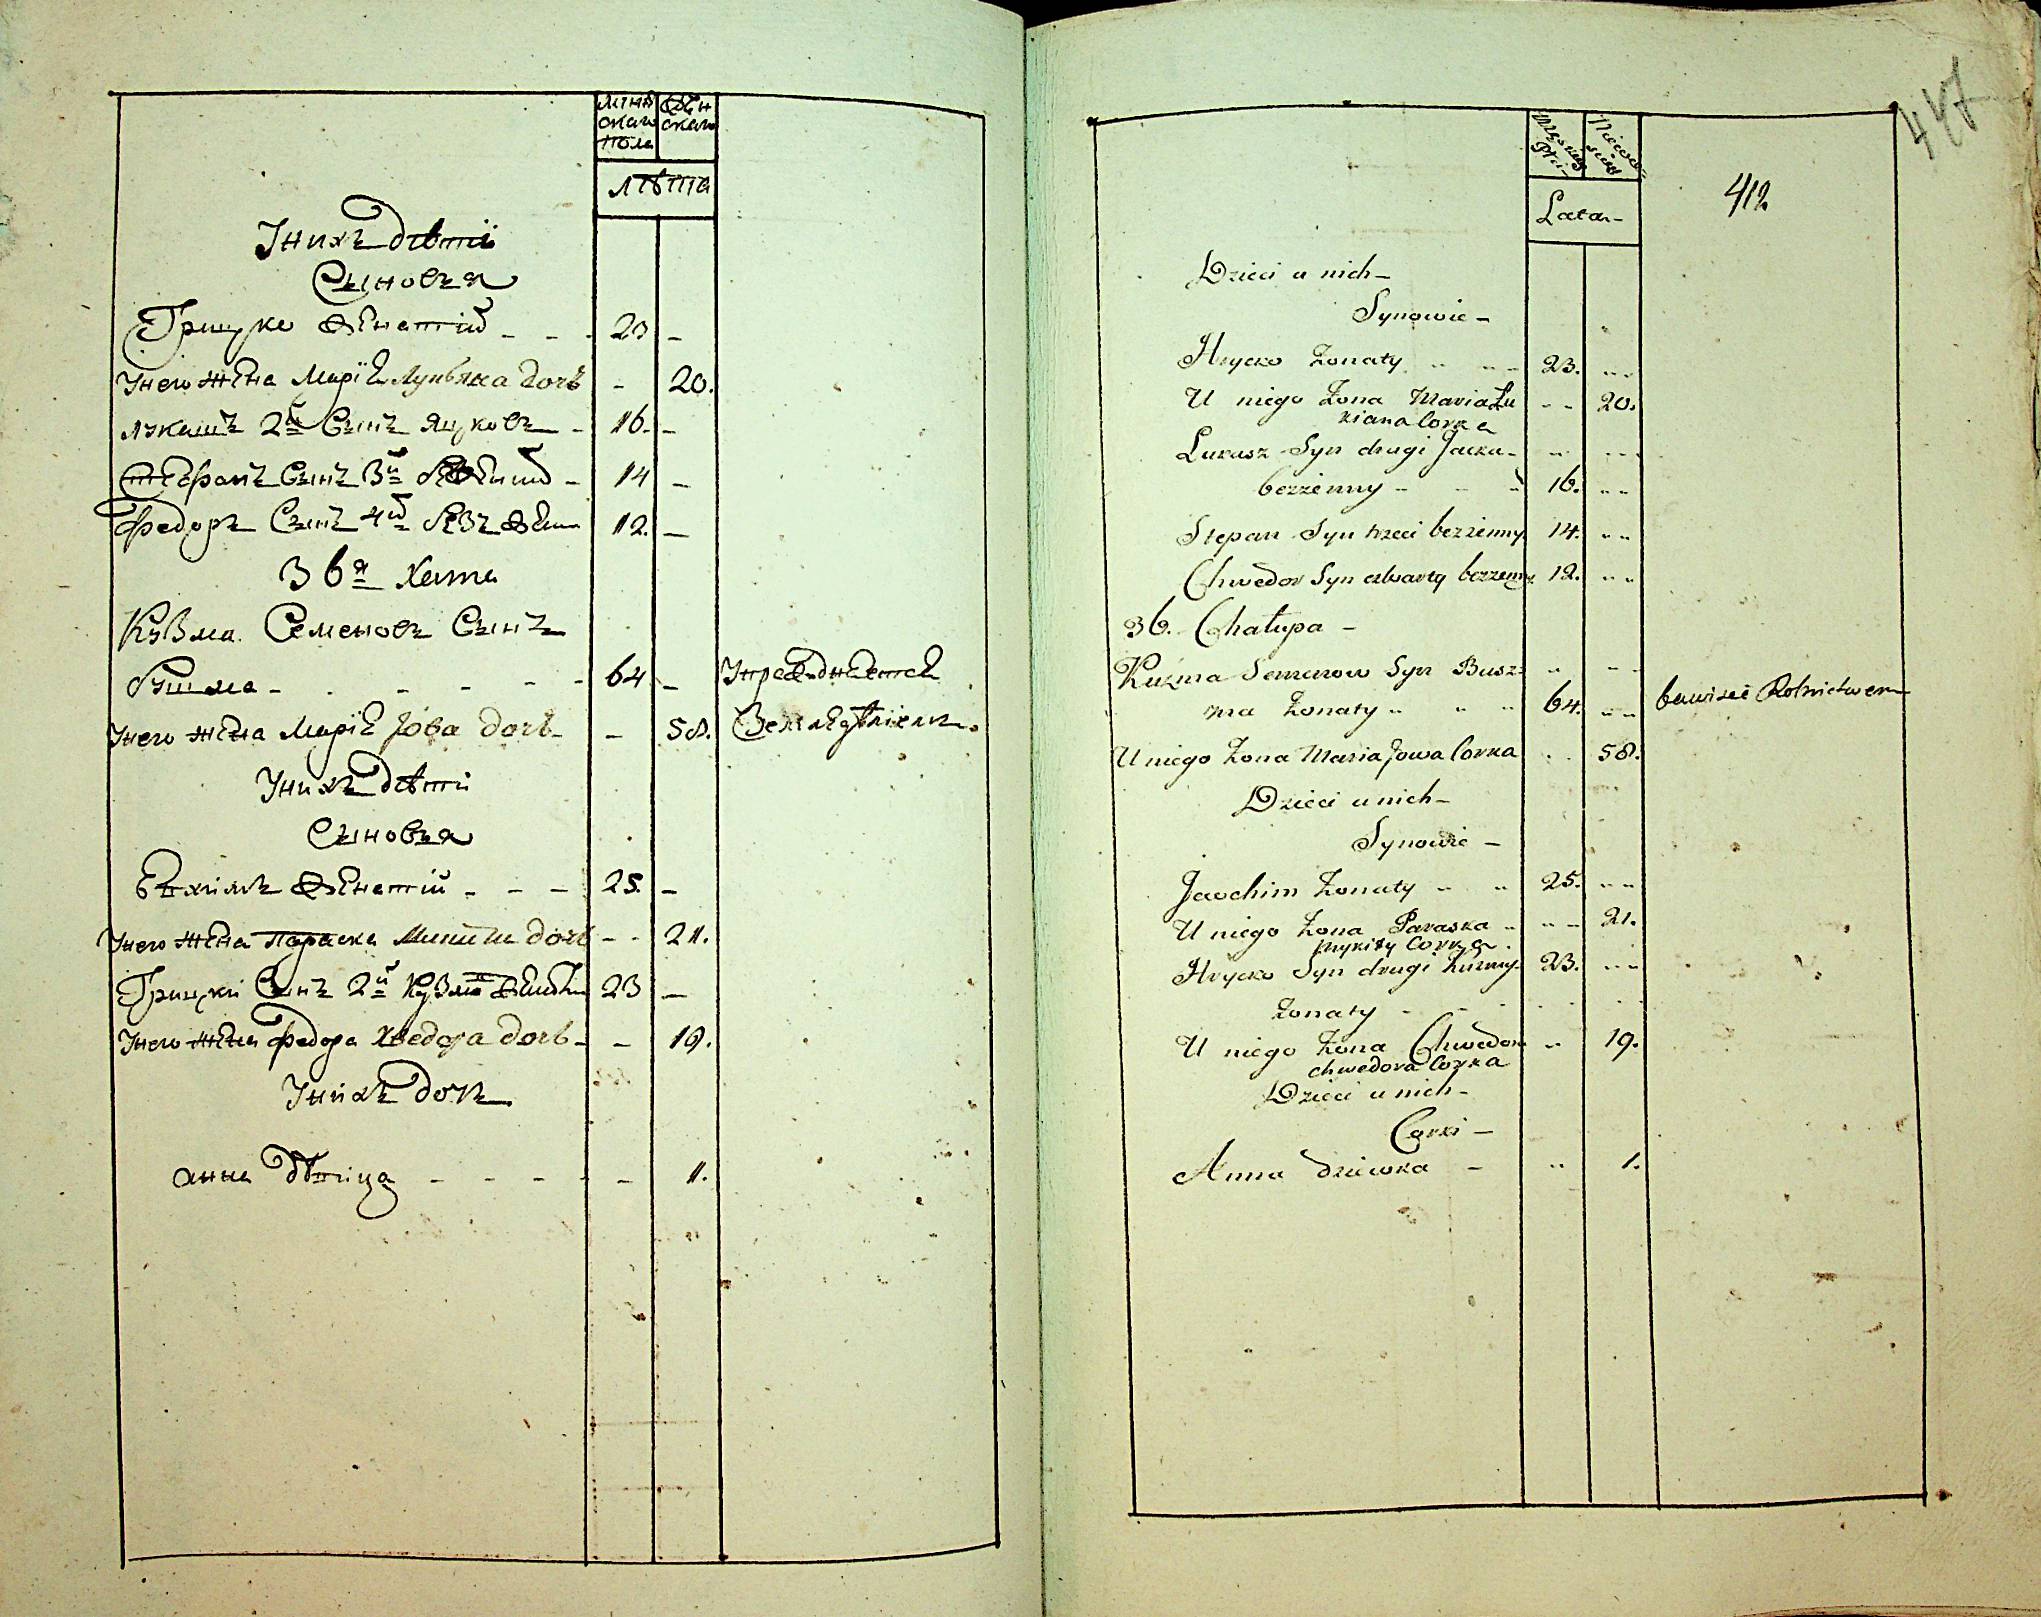 мужескаго пола
женскаго
лѣта
У нихъ дѣти
Сыновья
Грицко женатій - - - 23 -
У него жена Маріа Лукьяна дочь - 20.
Лукашъ 2й Сынъ Яцковъ - 16. -
Стефанъ Сынъ 3й - 14 -
Федоръ Сынъ 4й 12. -
36я Хата
Кузма Семеновъ Сынъ
Бушма - - - - - - 64 -
У него жена Маріа Іова дочь - - 58.
У нихъ дѣти
Сыновья
Евхимъ женатій - - - 25. -
У него жена Параска Микити дочь - - 21.
Грицки Сынъ 2й Кузмы 23 -
У него жена Федора Хведора дочь - - 19.
У нихъ дочь
анна дѣвица - - - - - 1.
447
Męskiey Płci
Niewie-
Lata -
412
Dzieci u nich -
Synowie -
Hrycko Żonaty " " - 23. " "
U niego Żona Maria Łu - - 20.
kiana Corka
Łukasz Syn drugi Jacka -
bezżenny - - " 16. " "
Stepan Syn trzeci bezżenny 14. " "
Chwedor Syn czwarty bezżenny 12. " "
36. Chałupa -
Kuźma Semenow Syn Busz= " - -
ma Żonaty " " " 64. " " bawi się Rolnictwem
U niego Żona Maria Jowa Corka . . 58.
Dzieci u nich -
Synowie -
Jaochim Żonaty " " 25. " "
U niego Żona Paraska " " - 21.
Mykity Corka .
Hrycko Syn drugi Kuźmy. 23. " "
Żonaty - - - -
U niego Żona Chwedora " 19.
chwedora Corka
Dzieci u nich -
Corki -
Anna dziewka - " 1.